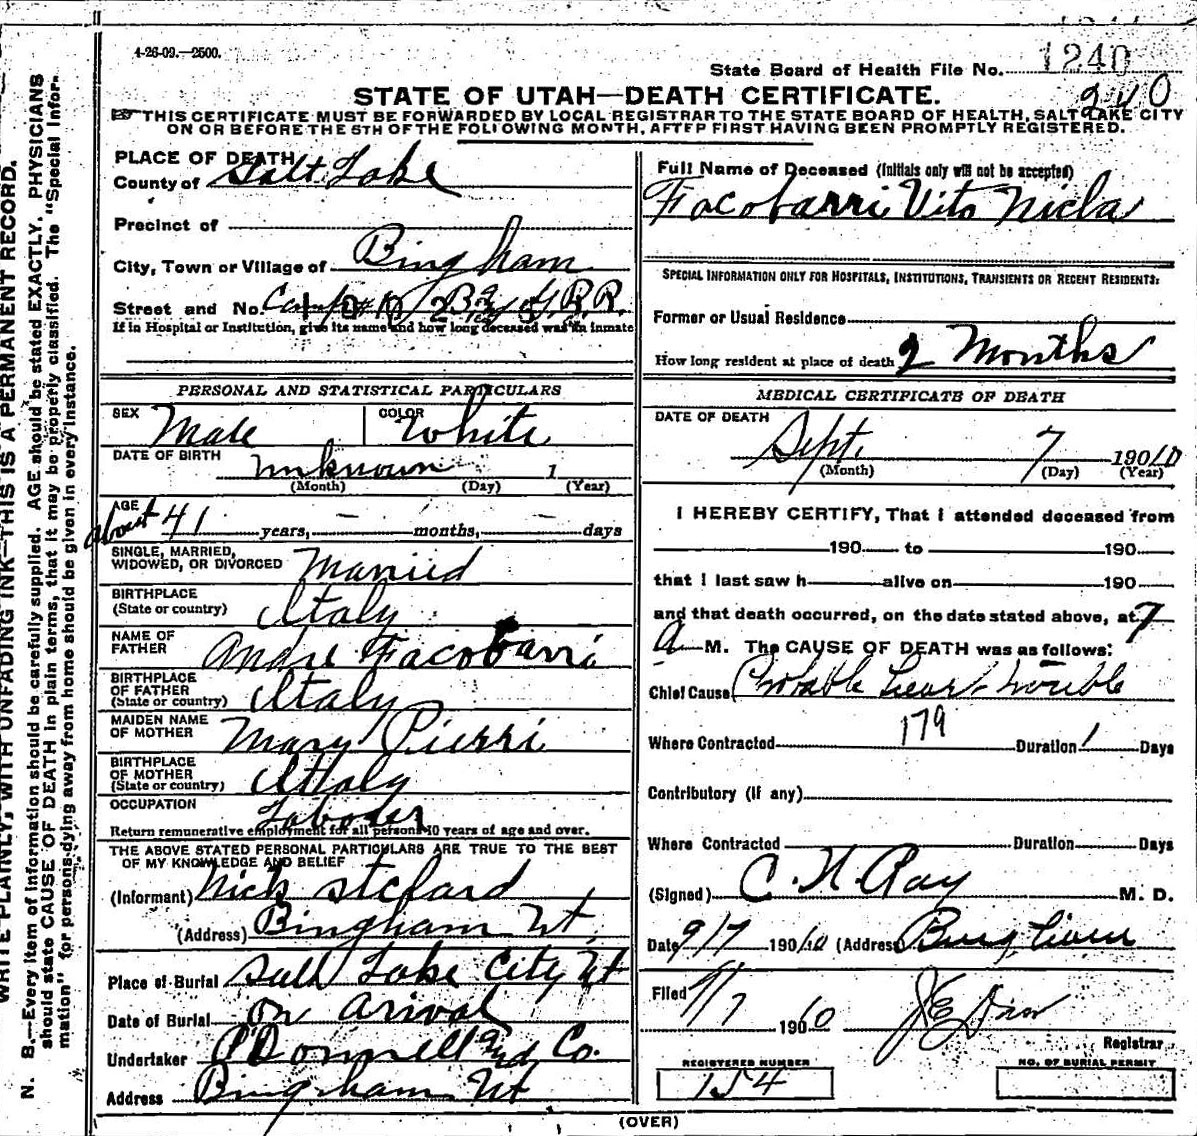 4-26-09.—2500.
State Board of Health File No. 1240
240
STATE OF UTAH—DEATH CERTIFICATE.
THIS CERTIFICATE MUST BE FORWARDED BY LOCAL REGISTRAR TO THE STATE BOARD OF HEALTH, SALT LAKE CITY
ON OR BEFORE THE 5TH OF THE FOLLOWING MONTH, AFTER FIRST HAVING BEEN PROMPTLY REGISTERED.
PLACE OF DEATH
County of Salt Lake
Precinct of
City, Town or Village of Bingham
Street and No. Camp
If in Hospital or Institution, give its name and how long deceased was an inmate
PERSONAL AND STATISTICAL PARTICULARS
SEX Male COLOR White
DATE OF BIRTH unknown 1
(Month) (Day) (Year)
AGE
about 41 years, — months, — days
SINGLE, MARRIED,
WIDOWED, OR DIVORCED Married
BIRTHPLACE
(State or country) Italy
NAME OF
FATHER Andre Facobarri
BIRTHPLACE
OF FATHER
(State or country) Italy
MAIDEN NAME
OF MOTHER Mary Pierri
BIRTHPLACE
OF MOTHER
(State or country) Attaly
OCCUPATION Laborer
Return remunerative employment for all persons 10 years of age and over.
THE ABOVE STATED PERSONAL PARTICULARS ARE TRUE TO THE BEST
OF MY KNOWLEDGE AND BELIEF
(Informant) Nick Stefard
(Address) Bingham Ut,
Place of Burial Salt Lake City Ut
Date of Burial On arival
Undertaker O'Donnell and Co.
Address Bingham Ut
Full Name of Deceased (Initials only will not be accepted)
Facobarri Vito Nicla
SPECIAL INFORMATION ONLY FOR HOSPITALS, INSTITUTIONS, TRANSIENTS OR RECENT RESIDENTS:
Former or Usual Residence
How long resident at place of death 2 Months
MEDICAL CERTIFICATE OF DEATH
DATE OF DEATH
Sept. 7 190/10
(Month) (Day) (Year)
I HEREBY CERTIFY, That I attended deceased from
190 to 190
that I last saw h alive on 190
and that death occurred, on the date stated above, at 7
a M. The CAUSE OF DEATH was as follows:
Chief Cause Probable Heart trouble
179
Where Contracted Duration 1 Days
Contributory (if any)
Where Contracted Duration Days
(Signed) C. N. Ray M. D.
Date 9/7 190/10 (Address)
Filed 9/7 1910
Registrar
REGISTERED NUMBER
154
NO. OF BURIAL PERMIT
(OVER)
WRITE PLAINLY, WITH UNFADING INK—THIS IS A PERMANENT RECORD.
N. B.—Every item of information should be carefully supplied. AGE should be stated EXACTLY. PHYSICIANS
should state CAUSE OF DEATH in plain terms, that it may be properly classified. The "Special Infor-
mation" for persons dying away from home should be given in every instance.